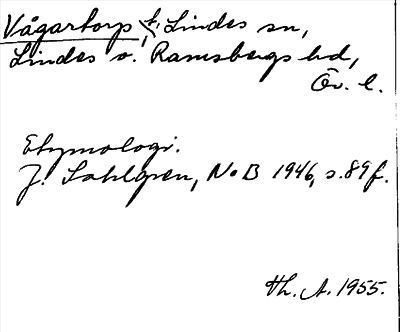 Vågartorp, f. Lindes sn,
Lindes o. Ramsbergs hd,
Ör. l.
Etymologi.
J. Sahlgren, NoB 1946, s. 89 f.
Th. A. 1955.